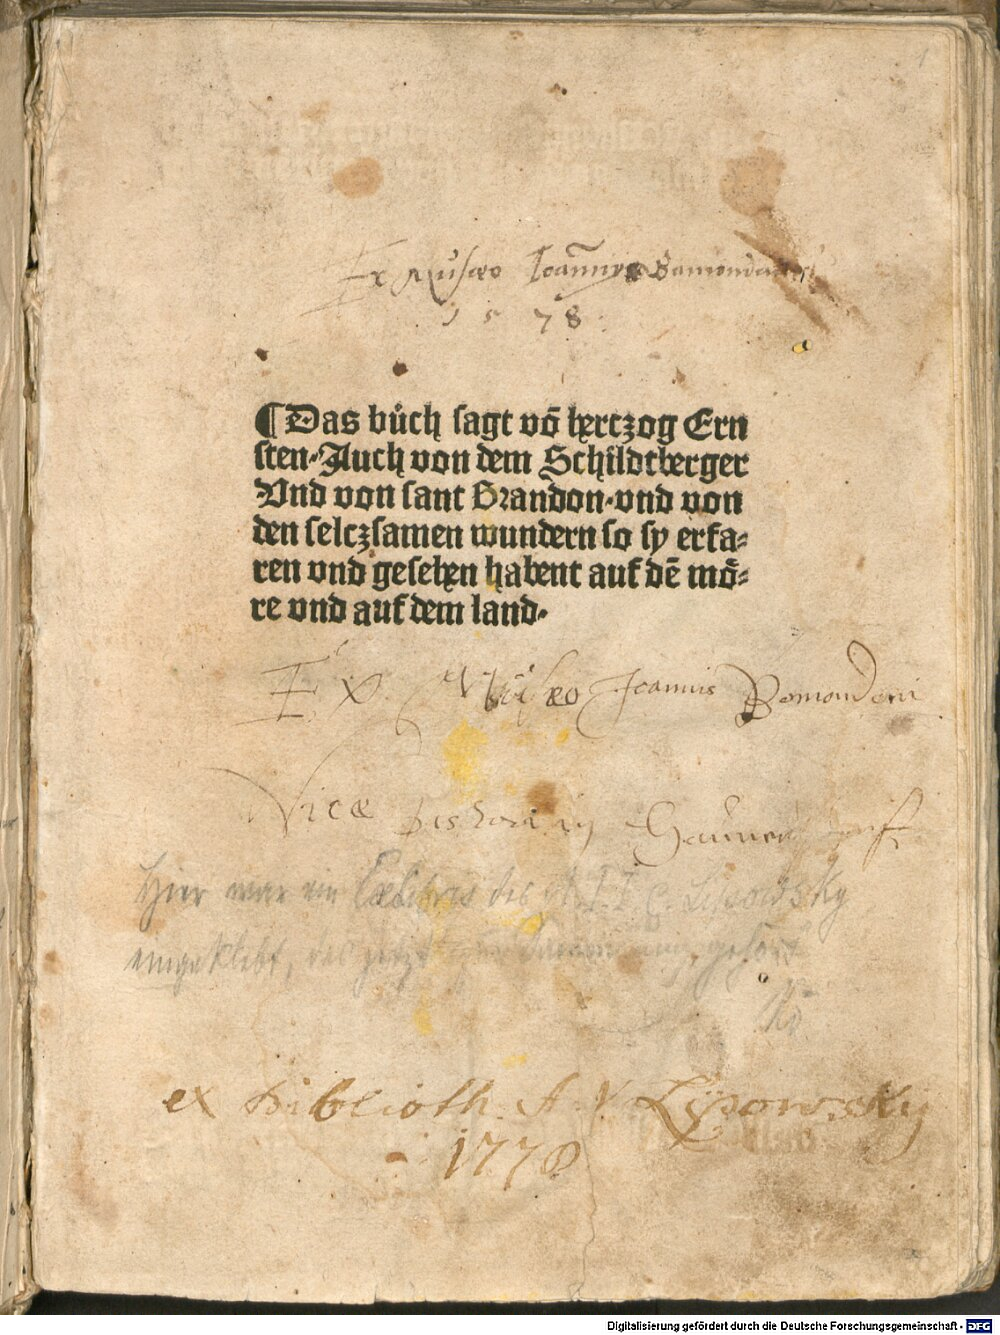 1
Ex Musæo Joannis
1578
¶Das bůch ſagt võ hertzog Ern
ſten·Auch von dem Schildtberger
Vnd von ſant Brandon·vnd von
den ſelczſamen wundern ſo ſy erfa⸗
ren vnd geſehen habent auf dẽ mȏ⸗
re vnd auf dem land·
Ex Musæo Joannis
Vice
Hier war ein Exlibris des Lipowsky
eingeklebt, das jetzt gehört
ex Biblioth. A Lipowsky
1778
Digitalisierung gefördert durch die Deutsche Forschungsgemeinschaft - DFG